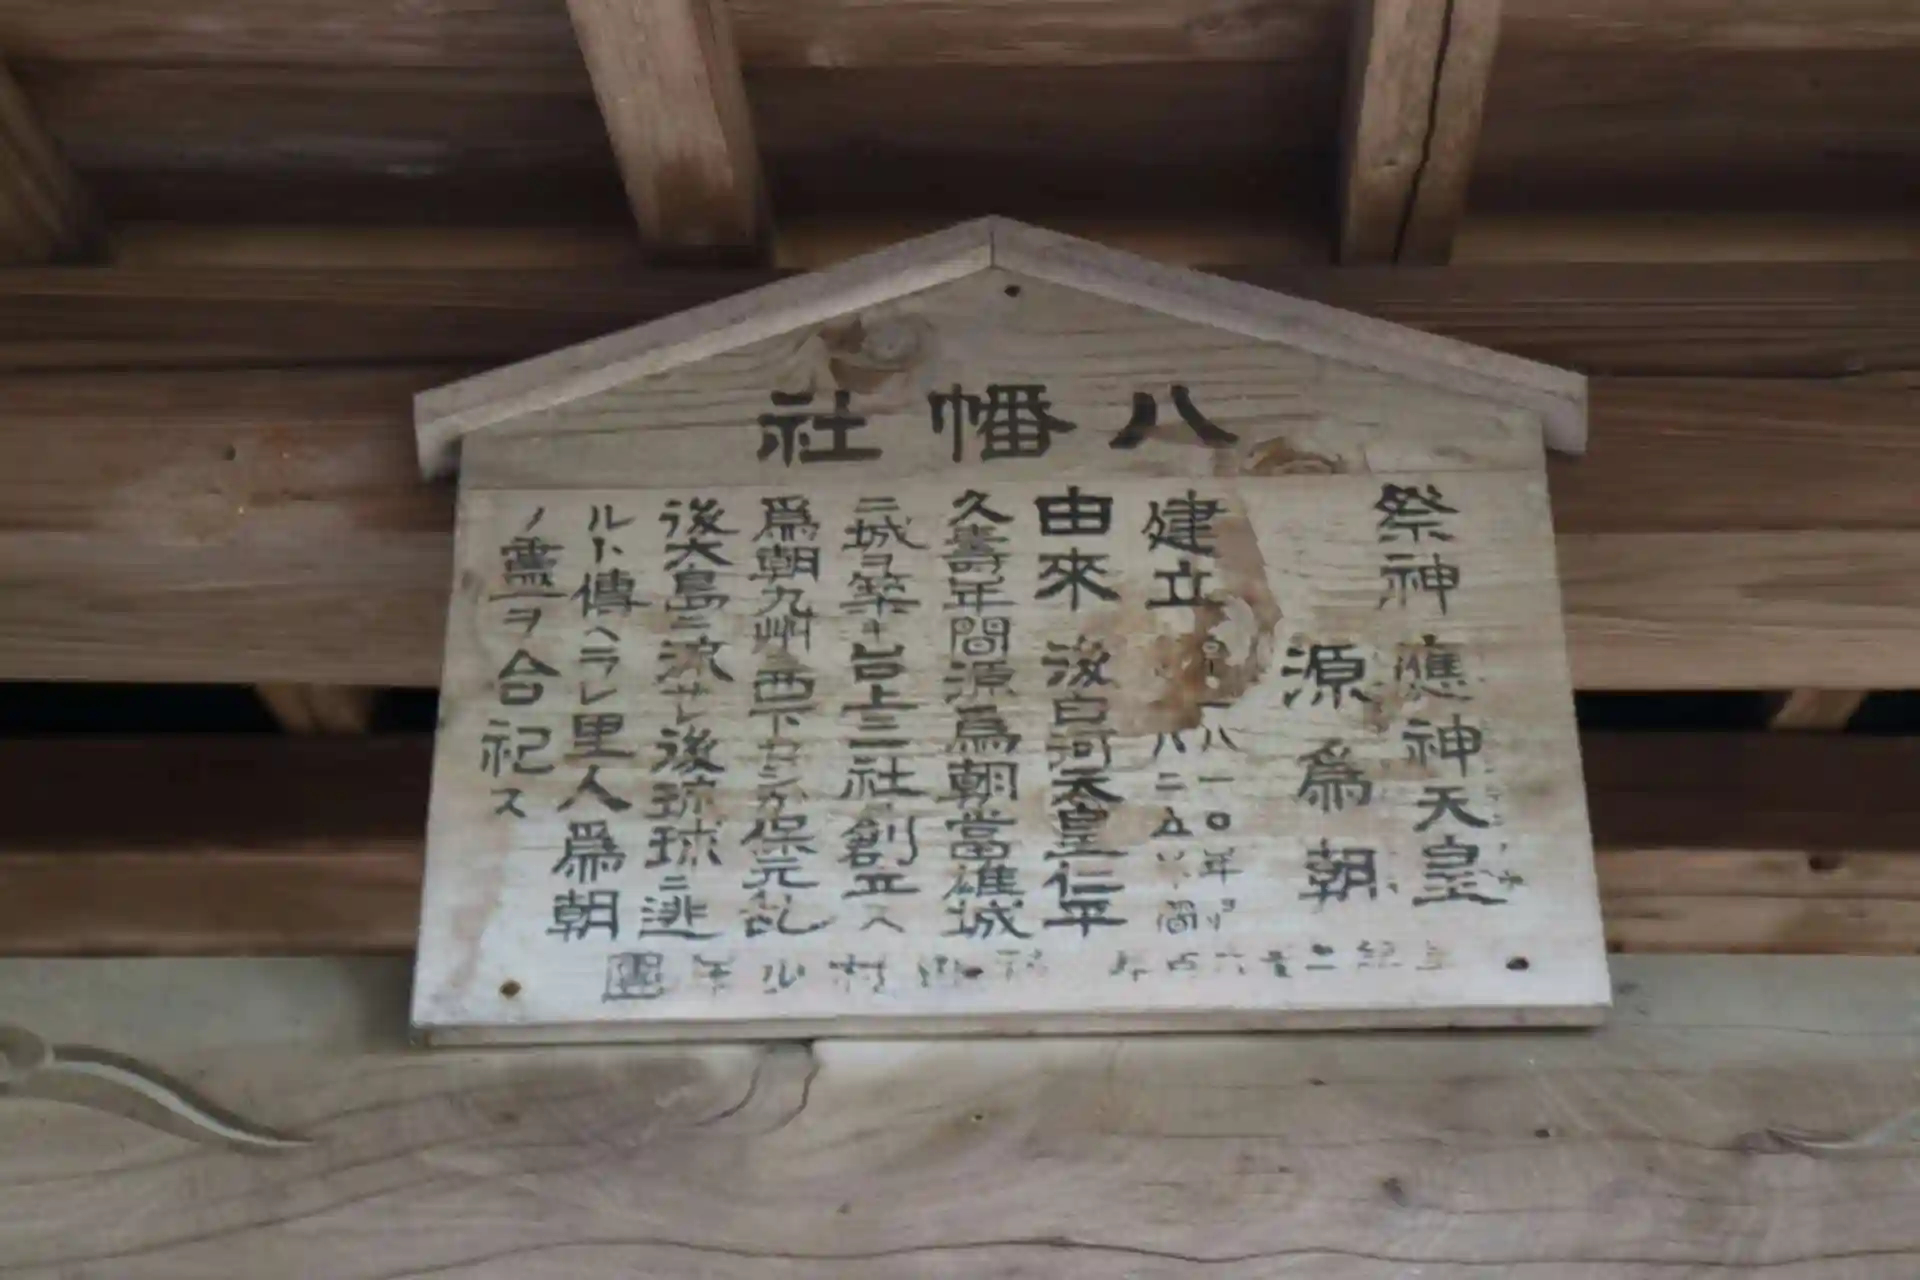 八幡社
祭神 應神天皇
源為朝
建立
一八一〇年
一八二五年間
由來 後白河天皇仁平
久壽年間源爲朝當雄城
ニ城ヲ築キ台上三社ヲ創立ス
爲朝九州ヲ西下セシガ保元乱
後大島ニ流サレ後琉球ニ逃
ルト傳ヘラレ里人爲朝
ノ靈ヲ合祀ス
村少年團